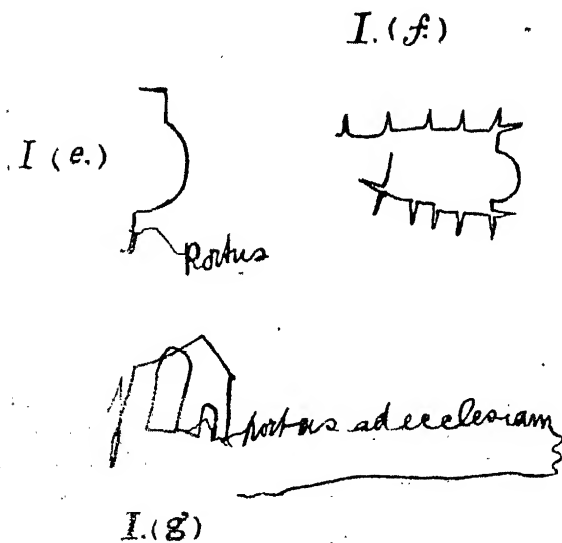 I. (f.)
I (e.)
Portus
portus ad ecclesiam
I. (g)